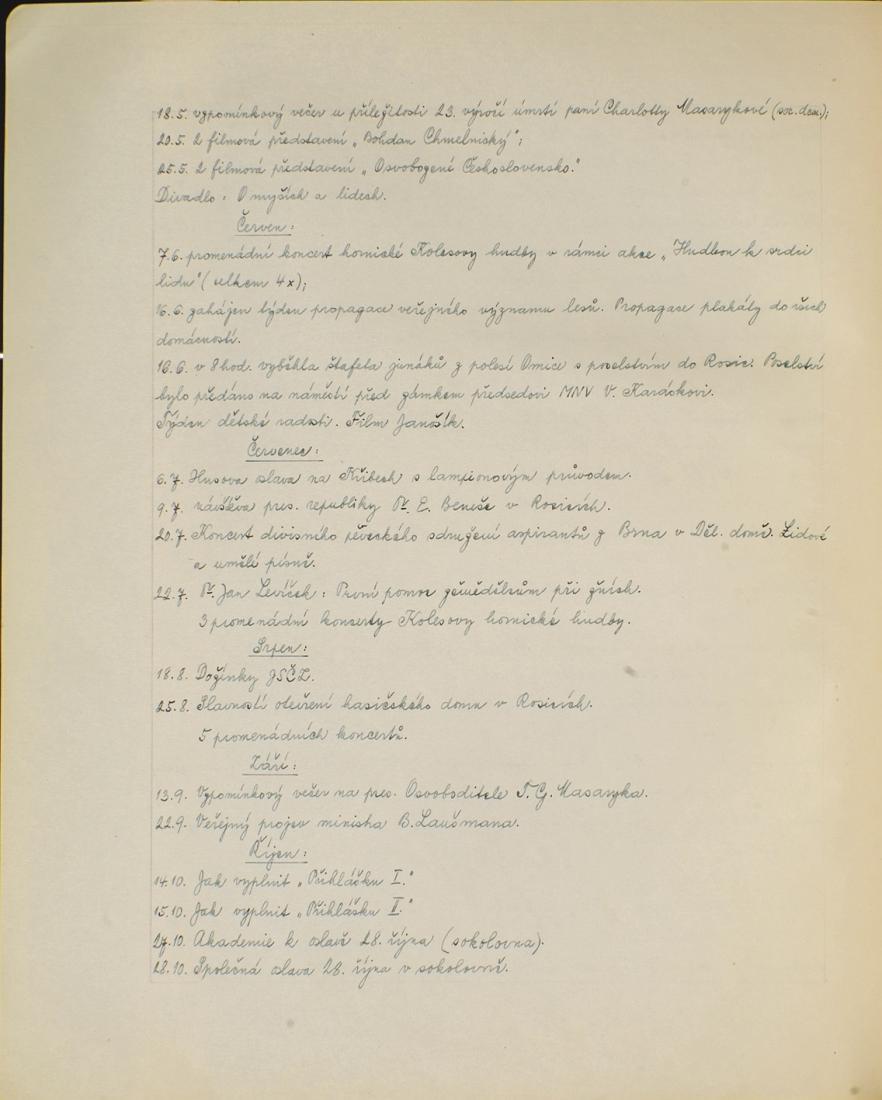 18.5. vzpomínkový večer u příležitosti 23. výročí úmrtí paní Charlotty Masarykové (soc. dem.);
20.5. 2 filmová představení „Bohdan Chmelnický";
25.5. 2 filmová představení „Osvobozené Československo."
Divadlo: O myších a lidech.
Červen:
7.6. promenádní koncert hornické Kolesovy hudby v rámci akce „Hudbou k srdci
lidu" (celkem 4x);
16.6. zahájen týden propagace veřejného významu lesů. Propagace plakáty do všech
domácností.
16.6. v 8 hod. vyběhla štafeta junáků z polesí Omice s poselstvím do Rosic. Poselství
bylo předáno na náměstí před zámkem předsedovi MNV V. Karáskovi.
Týden dětské radosti. Film Janošík.
Červenec:
6.7. Husova slava na Křibech s lampionovým průvodem.
9.7. návštěva pres. republiky Dr. E. Beneše v Rosicích.
20.7. Koncert divisního pěveckého sdružení aspirantů z Brna v Děl. domě. Lidové
a umělé písně.
22.7. Dr. Jan Levíček: První pomoc zemědělcům při žních.
3 promenádní koncerty Kolesovy hornické hudby.
Srpen:
18.8. Dožínky JSČZ.
25.8. Slavností otevření hasičského domu v Rosicích.
5 promenádních koncertů.
Září:
13.9. Vzpomínkový večer na pres. Osvoboditele T. G. Masaryka.
22.9. Veřejný projev ministra B. Laušmana.
Říjen:
14.10. Jak vyplnit „Přihlášku I."
15.10. Jak vyplnit „Přihlášku II."
27.10. Akademie k oslavě 28. října (sokolovna).
28.10. Společná oslava 28. října v sokolovně.